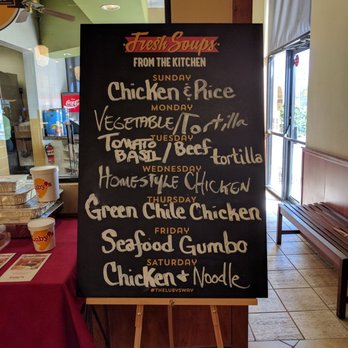 Fresh Soups
FROM THE KITCHEN
SUNDAY
Chicken & Rice
MONDAY
VEGETABLE/Tortilla
TUESDAY
TOMATO BASIL/Beef tortilla
WEDNESDAY
HOMESTYLE CHICKEN
THURSDAY
Green Chile Chicken
FRIDAY
Seafood Gumbo
SATURDAY
Chicken + Noodle
#THELUBYSWAY
Luby's
Coca-Cola